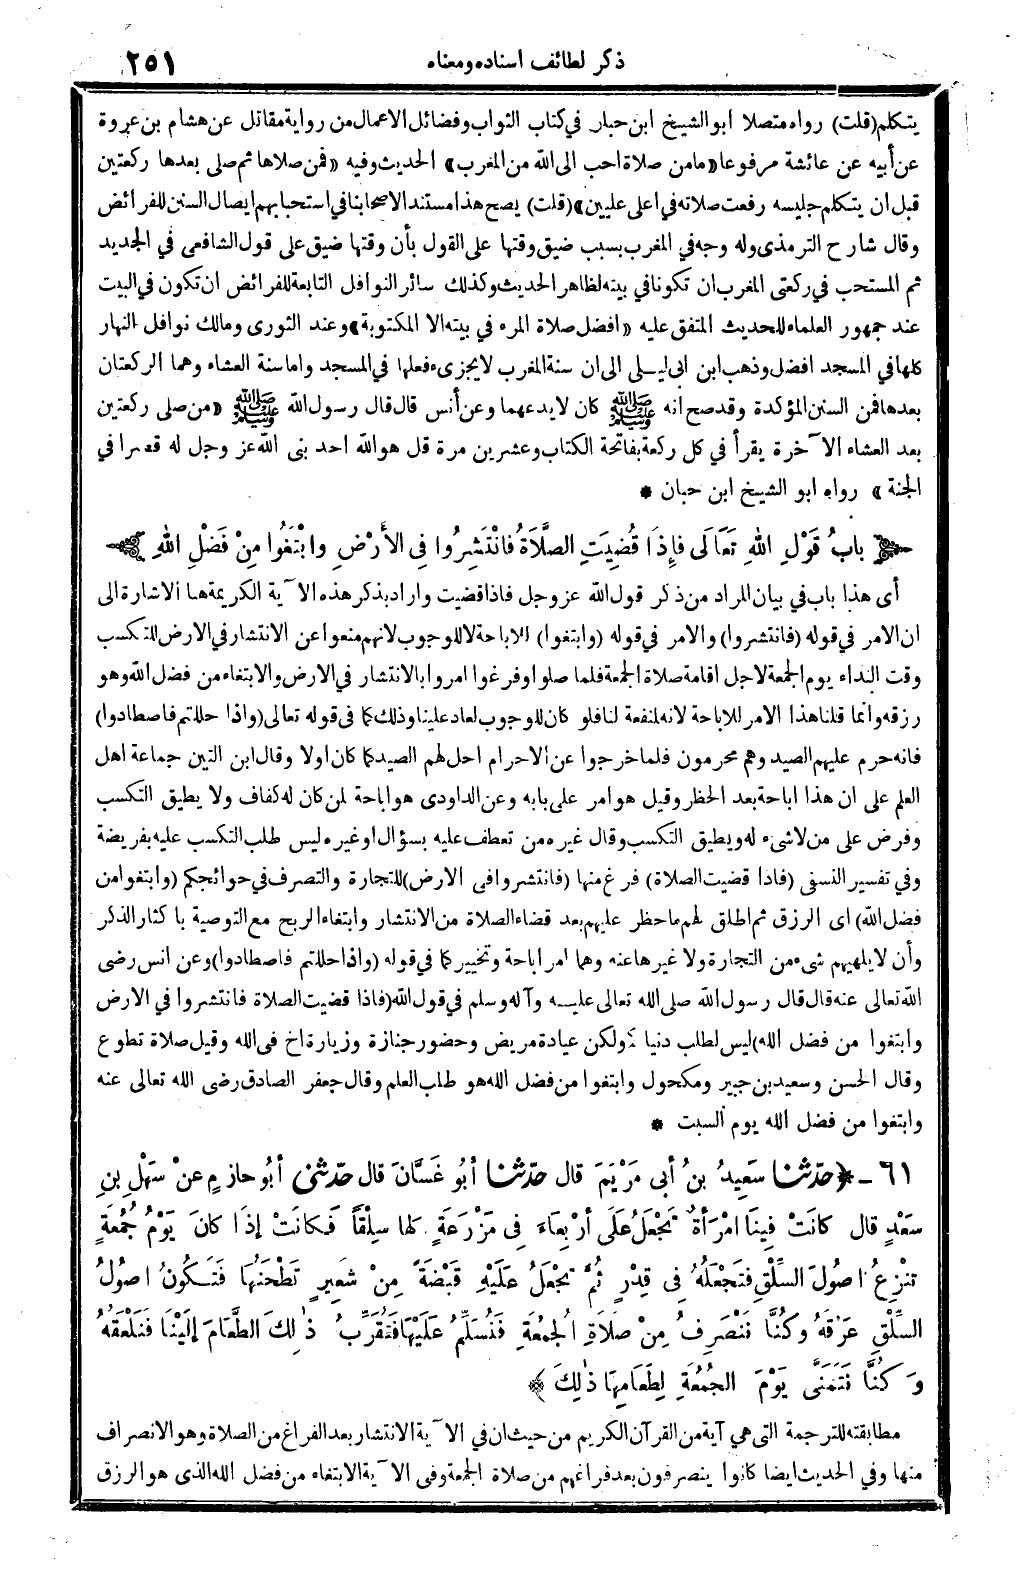 ذكر لطائف اسناده ومعناه ٢٥١
يتكلم (قلت) رواه متصلا ابو الشيخ ابن حبار في كتاب الثواب وفضائل الاعمال من رواية مقاتل عن هشام بن عروة
عن أبيه عن عائشة مرفوعا «ما من صلاة احب الى الله من المغرب» الحديث وفيه «فمن صلاها ثم صلى بعدها ركعتين
قبل ان يتكلم جليسه رفعت صلاته في اعلى عليين» (قلت) يصح هذا مستندا لاصحابنا في استحبابهم ايصال السنن للفرائض
وقال شارح الترمذى وله وجه في المغرب بسبب ضيق وقتها على القول بأن وقتها ضيق على قول الشافعى في الجديد
ثم المستحب في ركعتى المغرب ان تكونا في بيته لظاهر الحديث وكذلك سائر النوافل التابعة للفرائض ان تكون في البيت
عند جمهور العلماء للحديث المتفق عليه «افضل صلاة المرء في بيته الا المكتوبة» وعند الثورى ومالك نوافل النهار
كلها في المسجد افضل وذهب ابن ابى ليلى الى ان سنة المغرب لا يجزىء فعلها في المسجد واما سنة العشاء وهما الركعتان
بعدها فمن السنن المؤكدة وقد صح انه ﷺ كان لا يدعهما وعن أنس قال قال رسول الله ﷺ «من صلى ركعتين
بعد العشاء الآخرة يقرأ في كل ركعة بفاتحة الكتاب وعشرين مرة قل هو الله احد بنى الله عز وجل له قصرا في
الجنة» رواه ابو الشيخ ابن حبان *
﴿ بابُ قَوْلِ اللهِ تَعَالَى فإِذَا قُضِيَتِ الصَّلَاةُ فانْتَشِرُوا فِى الأَرْضِ وابْتَغُوا مِنْ فَضْلِ اللهِ ﴾
أى هذا باب في بيان المراد من ذكر قول الله عز وجل فاذا قضيت واراد بذكر هذه الآية الكريمة ها الاشارة الى
ان الامر في قوله (فانتشروا) والامر في قوله (وابتغوا) للاباحة لا للوجوب لانهم منعوا عن الانتشار في الارض للتكسب
وقت النداء يوم الجمعة لاجل اقامة صلاة الجمعة فلما صلوا وفرغوا امروا بالانتشار في الارض والابتغاء من فضل الله وهو
رزقه وانما قلنا هذا الامر للاباحة لانه لمنفعة لنا فلو كان للوجوب لعاد علينا وذلك كما في قوله تعالى (واذا حللتم فاصطادوا)
فانه حرم عليهم الصيد وهم محرمون فلما خرجوا عن الاحرام احل لهم الصيد كما كان اولا وقال ابن التين جماعة اهل
العلم على ان هذا اباحة بعد الحظر وقيل هو امر على بابه وعن الداودى هو اباحة لمن كان له كفاف ولا يطيق التكسب
وفرض على من لا شىء له ويطيق التكسب وقال غيره من تعطف عليه بسؤال او غيره ليس طلب التكسب عليه بفريضة
وفي تفسير النسفى (فاذا قضيت الصلاة) فرغ منها (فانتشروا فى الارض) للتجارة والتصرف في حوائجكم (وابتغوا من
فضل الله) اى الرزق ثم اطلق لهم ما حظر عليهم بعد قضاء الصلاة من الانتشار وابتغاء الربح مع التوصية باكثار الذكر
وأن لا يلهيهم شىء من التجارة ولا غيرها عنه وهما امر اباحة وتخيير كما في قوله (واذا حللتم فاصطادوا) وعن انس رضى
الله تعالى عنه قال قال رسول الله صلى الله تعالى عليه وآله وسلم في قول الله (فاذا قضيت الصلاة فانتشروا في الارض
وابتغوا من فضل الله) ليس لطلب دنيا ولكن عيادة مريض وحضور جنازة وزيارة اخ فى الله وقيل صلاة تطوع
وقال الحسن وسعيد بن جبير ومكحول وابتغوا من فضل الله هو طلب العلم وقال جعفر الصادق رضى الله تعالى عنه
وابتغوا من فضل الله يوم السبت *
٦١ - ﴿ حدّثنا سَعِيدُ بنُ أبى مَرْيَمَ قال حدّثنا أبُو غَسَّانَ قال حدّثنى أبُو حازِمٍ عنْ سَهْلِ بنِ
سَعْدٍ قال كانَتْ فِينَا امْرَأةٌ تَجْعَلُ عَلَى أرْبِعَاءَ فِى مَزْرَعَةٍ لَهَا سِلْقاً فَكانَتْ إذَا كانَ يَوْمُ جُمُعَةٍ
تَنْزِعُ اصُولَ السِّلْقِ فتَجْعَلُهُ فِى قِدْرٍ ثُمَّ تَجْعَلُ عَلَيْهِ قَبْضَةً مِنْ شَعِيرٍ تَطْحَنُهَا فَتَكُونُ اصُولُ
السِّلْقِ عَرْقَهُ وكُنَّا نَنْصَرِفُ مِنْ صَلَاةِ الجُمُعَةِ فَنُسَلِّمُ عَلَيْهَا فَتُقَرِّبُ ذٰلِكَ الطَّعَامَ إلَيْنَا فَنَلْعَقُهُ
وَكُنَّا نَتَمَنَّى يَوْمَ الجُمُعَةِ لِطَعَامِهَا ذٰلِكَ ﴾
مطابقته للترجمة التى هي آية من القرآن الكريم من حيث ان في الآية الانتشار بعد الفراغ من الصلاة وهو الانصراف
منها وفي الحديث ايضا كانوا ينصرفون بعد فراغهم من صلاة الجمعة وفى الآية الابتغاء من فضل الله الذى هو الرزق